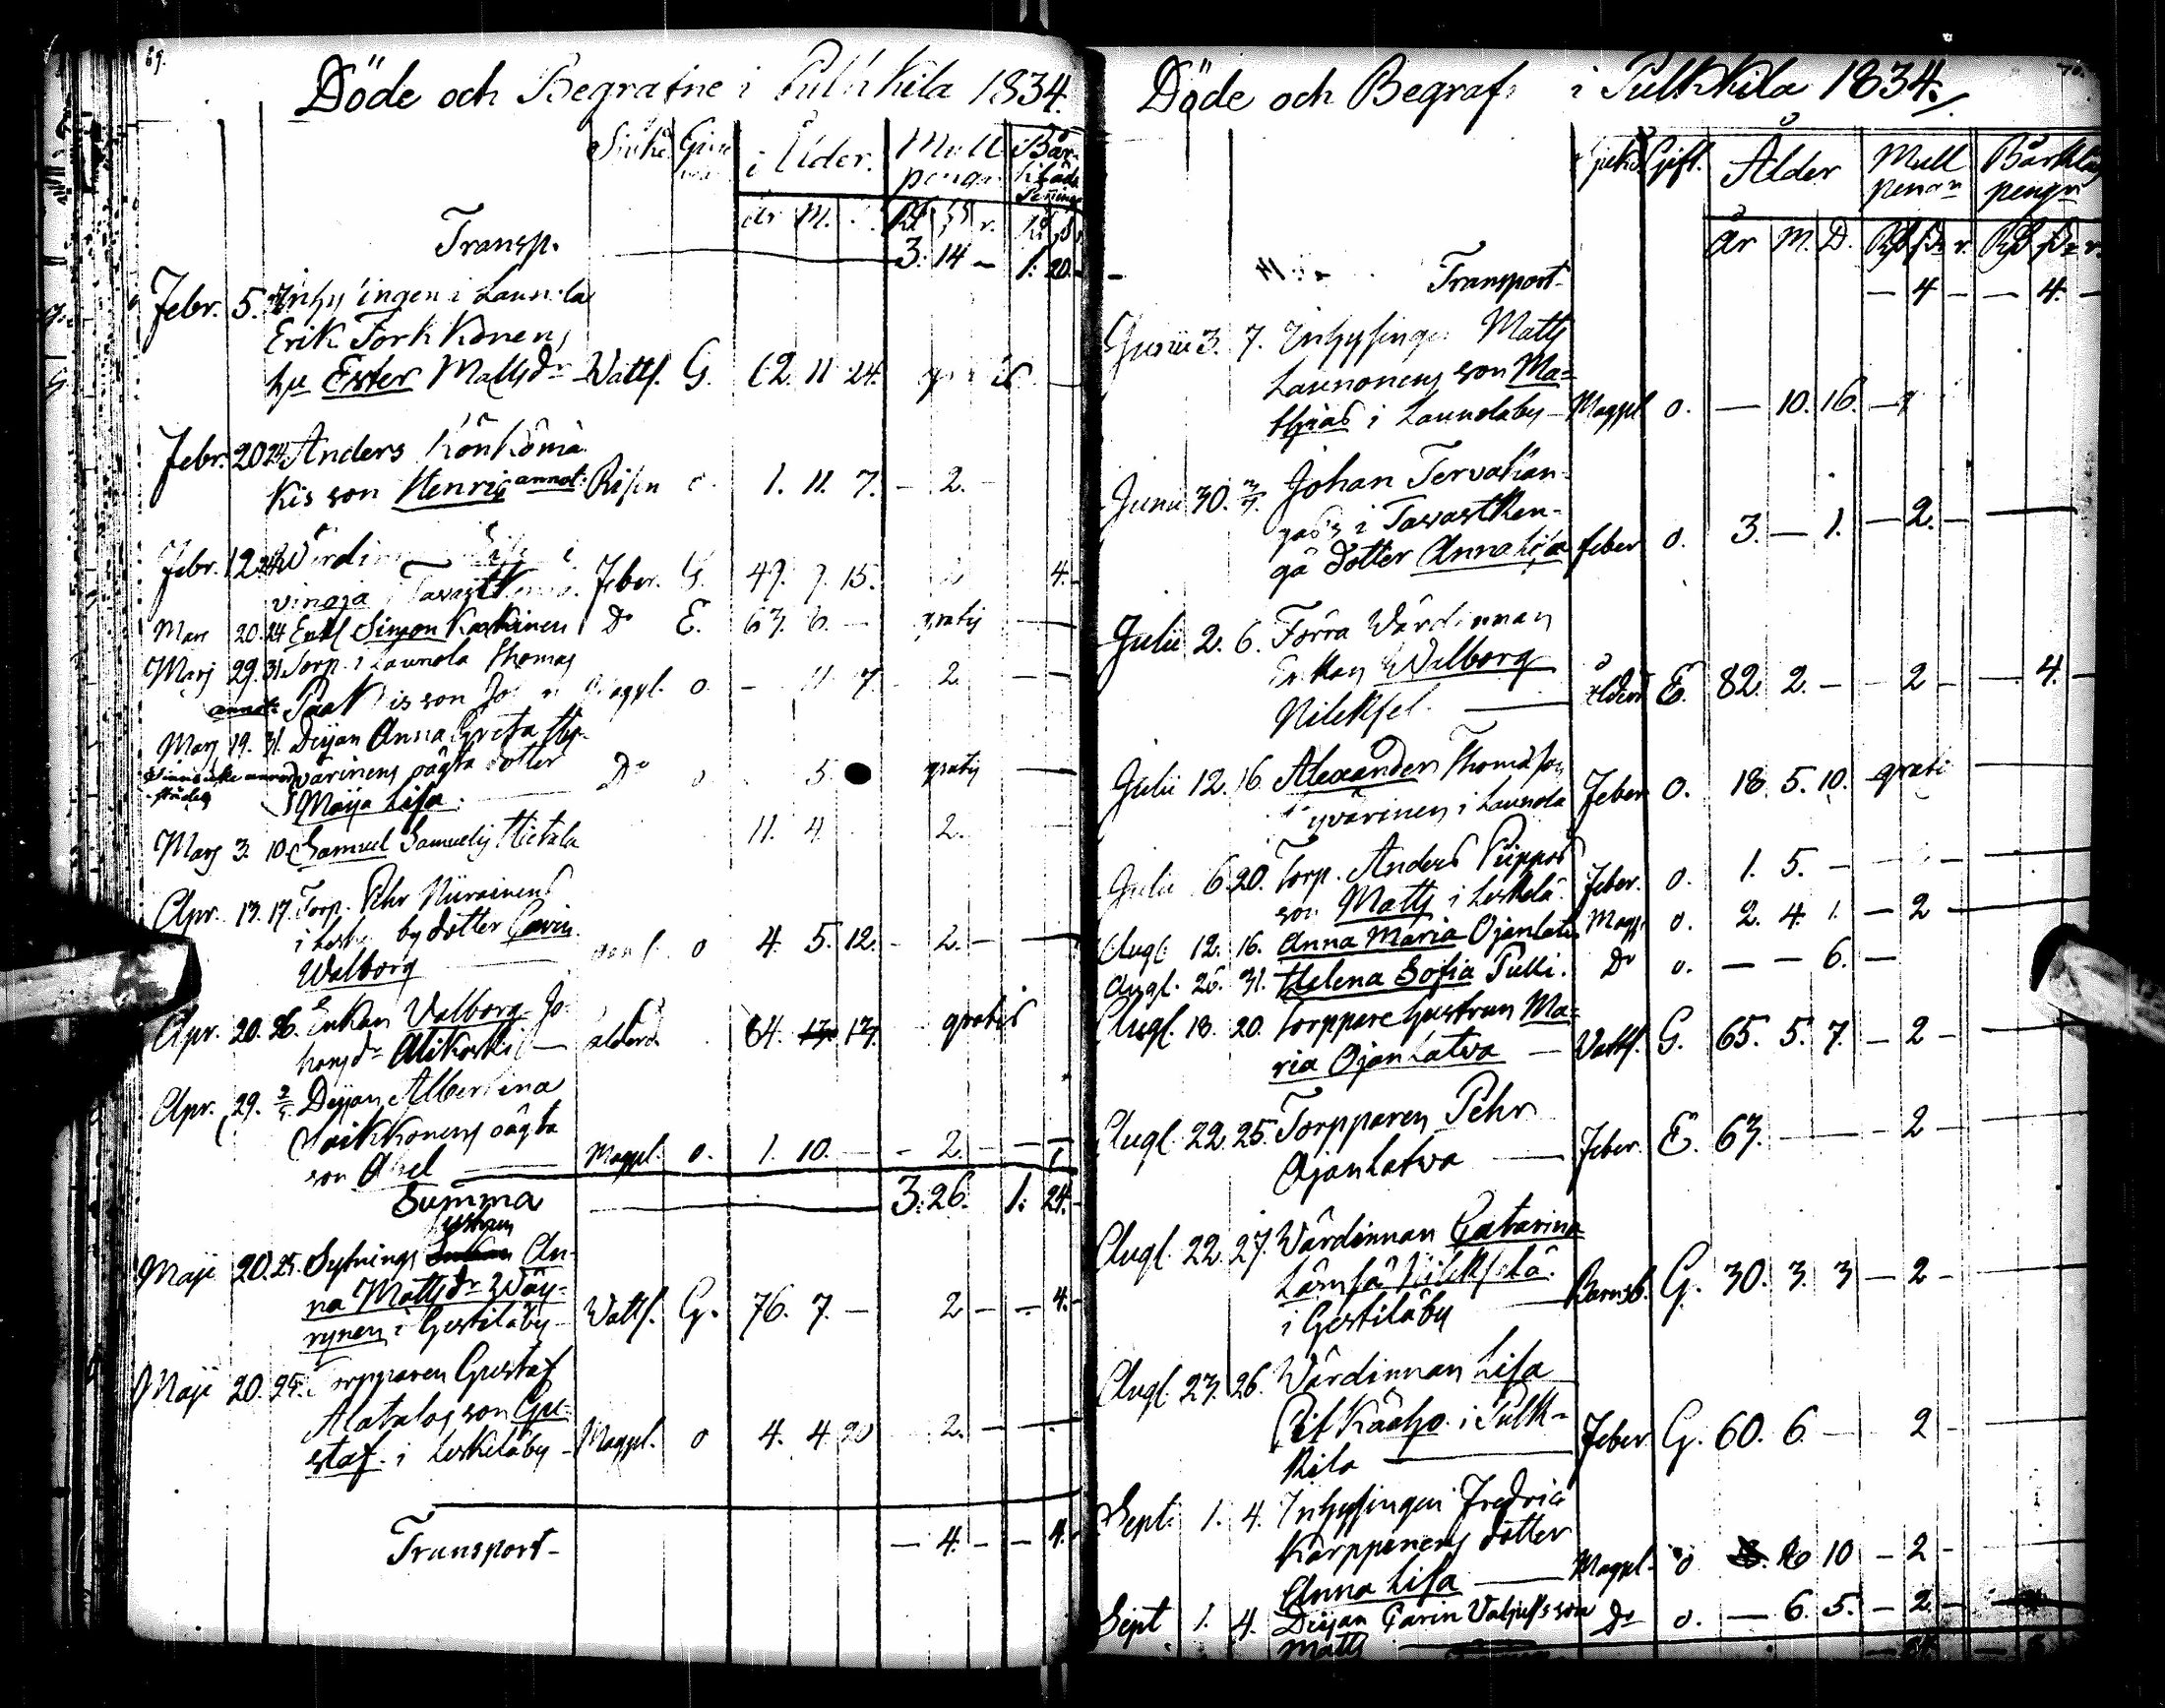 69.
Döde och Begrafne i Pulkkila 1834.
i Ålder. Mull pengar
år M.
Transp. 3. 14 - 1: 20.-
Febr. 5. i Launola
Erik Torkkonens
hu Ester Mattsdr Watts. G. 62. 11 24. gratis
Febr. 20 24 Anders Könkömä
kis son Henric annot. Risen o. 1. 11. 7. - 2. -
Febr. 12
vinoja Tavastkenga Feber. G. 49. 15. 2 4.-
Mars 20. 24 Enkl Simon Kaskinen Do E. 63. 6. - gratis
Marj 29. 31. Torp. i Launola Thomas
annot. son Magpl. o. - 11 7. 2.
Marj 19. 31. Deijan Anna Greta Hy-
värinens oägta dotter
Maija Lisa. Do o 5. gratis
Marj 3. 10. Samuel Samuelis Hietala 11. 4. 2.
Apr. 13. 17. Torp. Pehr Niirainens
by dotter Carin
Walborg o 4. 5. 12. - 2. -
Apr. 20. 26. Enkan Valborg Jo-
hansdr Alikoski ålderd. 64. 17. gratis
Apr. 29. 2/5 Deijan Albertina
oägta
son Abel Magpl. o. 1. 10. - - 2. -
Summa 3. 26. 1. 24.
hustrun
Maji 20. 25. Sytnings An-
na Mattsdr Wäy-
rynen i Gestiläby - Wattf. G. 76. 7. - 2 - - 4.-
Maji 20. 25. Torpparen Gustaf
Alatalos son Gu-
staf. i Leskeläby - Magpl. o 4. 4 20 2. -
Transport - - 4. - - 4.-
Döde och Begraf i Pulkkila 1834.
Sjukd. Gift. Ålder Mull pengr Bårkläd pengr
År M. D.
Transport - - 4 - - 4. -
Junii 3. 7. Inhysingen Matts
Launonens son Ma-
thias i Launolaby - Magpl. o. - 10. 16.
Junii 30. 3/7. Johan Tervakan-
gas's i Tavastken-
gä dotter Anna Lisa feber o. 3. - 1. - 2. -
Julii 2. 6. Förra Wärdinnan
Enkan Walborg
Nilkksel. ålderd E. 82. 2. - - 2 - - 4. -
Julii 12. 16. Alexander Thomasson
Hyvärinen i Launola Feber o. 18. 5. 10. gratis
Julii 6. 20. Torp. Anders Piippos
son Matts i Leskelä. Feber. o. 1. 5. -
Augl. 12. 16. Anna Maria Ojanlatva Magp. o. 2. 4. 1. - 2
Augl. 26. 31. Helena Sofia Pulli. Do o. - - 6. -
Augl. 18. 20. Torppare hustrun Ma-
ria Ojanlatva - Vattf. G. 65. 5. 7. - 2 -
Augl. 22. 25. Torpparen Pehr
Ojanlatva Feber. E. 63. - - 2 -
Augl. 22. 27. Wärdinnan Catarina
Lämsä Nilkkselä.
i Gestiläby Barnsb. G. 30. 3. 3 - 2 -
Augl. 23. 26. Wärdinnan Lisa
Pitkäaho. i Pulk-
kila Feber G. 60. 6. - 2 -
Sept. 1. 4. Inhysingen Fredric
Karppinens dotter
Anna Lisa Magpl. o 10 - 2 -
Sept 1. 4. Deijan Carin Valjus's son Do o. - 6. 5. - 2. -
Matts